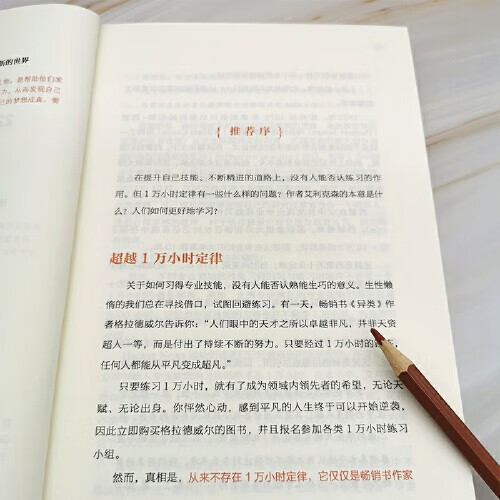 新的世界
是帮助他们发
力，从而发现自己
己的梦想成真。
{ 推荐序 }
在提升自己技能、不断精进的道路上，没有人能否认练习的作
用。但 1 万小时定律有一些什么样的问题？作者艾利克森的本意是什
么？人们如何更好地学习？
超越 1 万小时定律
关于如何习得专业技能，没有人能否认熟能生巧的意义。生性懒
惰的我们总在寻找借口，试图回避练习。有一天，畅销书《异类》作
者格拉德威尔告诉你：“人们眼中的天才之所以卓越非凡，并非天资
超人一等，而是付出了持续不断的努力。只要经过 1 万小时的
任何人都能从平凡变成超凡。”
只要练习 1 万小时，就有了成为领域内领先者的希望，无论天
赋、无论出身。你怦然心动，感到平凡的人生终于可以开始逆袭，
因此立即购买格拉德威尔的图书，并且报名参加各类 1 万小时练习
小组。
然而，真相是，从来不存在 1 万小时定律，它仅仅是畅销书作家